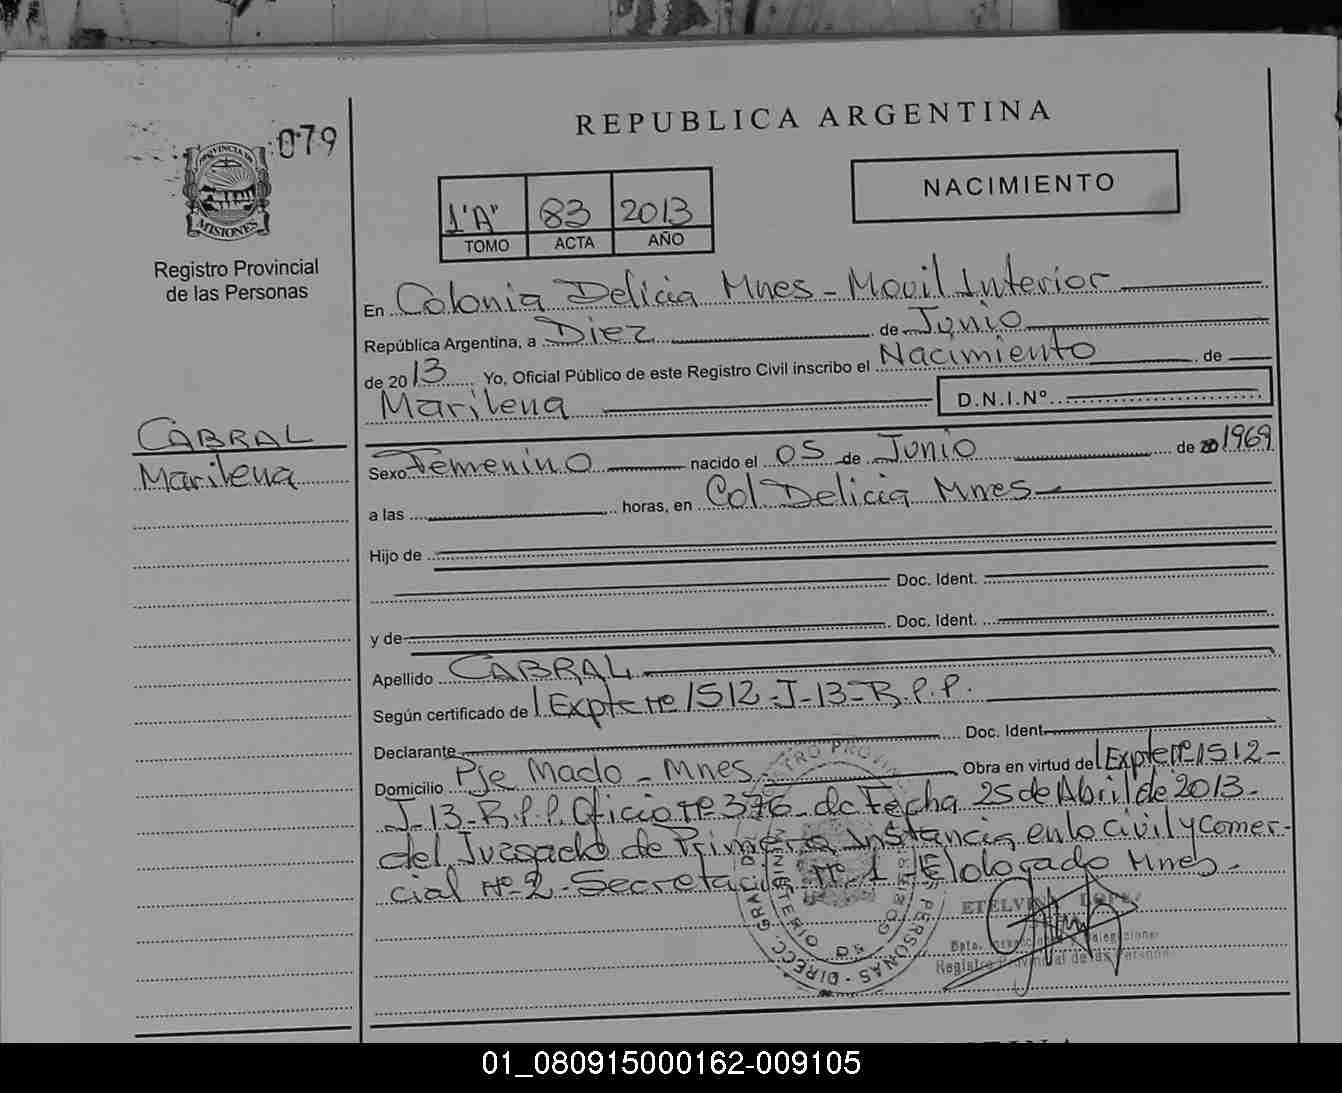 REPUBLICA ARGENTINA
079
PROVINCIA DE
MISIONES
Registro Provincial
de las Personas
NACIMIENTO
1"A" 83 2013
TOMO ACTA AÑO
En Colonia Delicia Mnes - Movil Interior
República Argentina, a Diez de Junio
de 2013 Yo, Oficial Público de este Registro Civil inscribo el Nacimiento de
Marilena D.N.I.Nº
CABRAL
Marilena
Sexo Femenino nacido el 05 de Junio de 20 1969
a las horas, en Col. Delicia Mnes
Hijo de
Doc. Ident.
y de Doc. Ident.
Apellido CABRAL
Según certificado de l Expte nº 1512-J-13-R.P.P.
Declarante Doc. Ident.
Domicilio Pje Mado - Mnes. Obra en virtud del Expte nº 1512-
J-13-R.P.P. Oficio nº 376 de Fecha 25 de Abril de 2013-
del Juzgado de Primera Instancia en lo Civil y Comer-
cial Nº 2 - Secretaria Nº 1 - Eldorado Mnes -
ETELVINA LOPEZ
Registro Provincial de las Personas
01_080915000162-009105